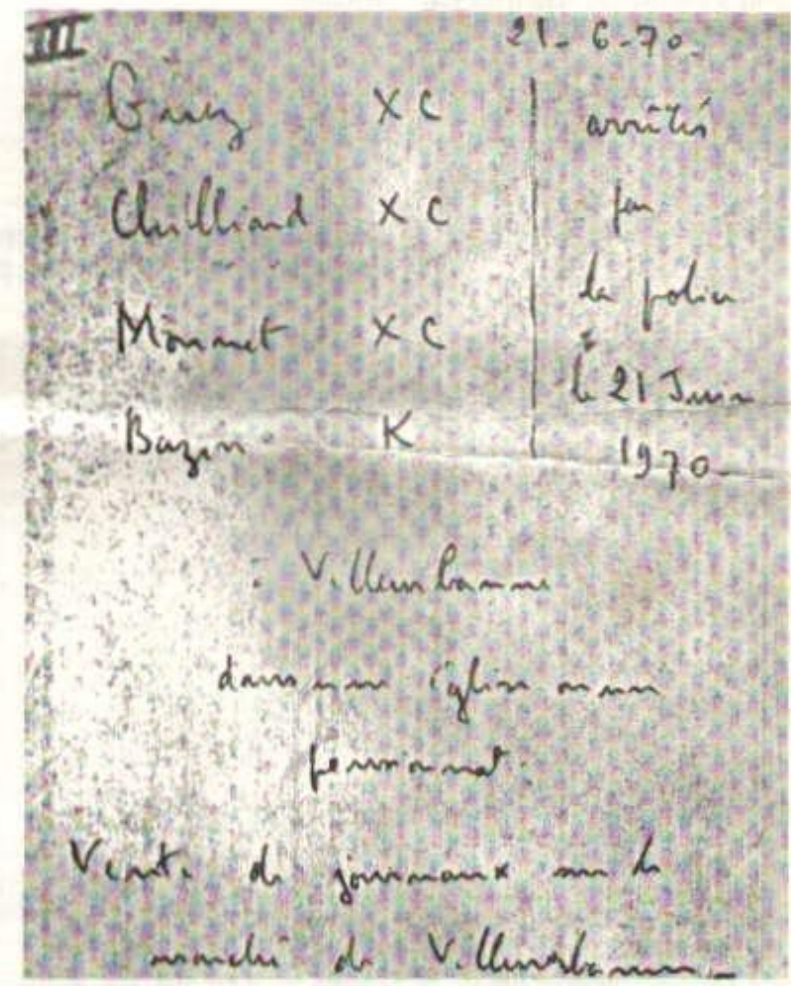 III
21-6-70.
Guez XC
Chilliard XC
Monnet XC
Bazin K
arrêtés
par
la police
le 21 Juin
1970.
à Villeurbanne
dans une église ou un
pensionnat.
Vente de journaux sur le
marché de Villeurbanne.